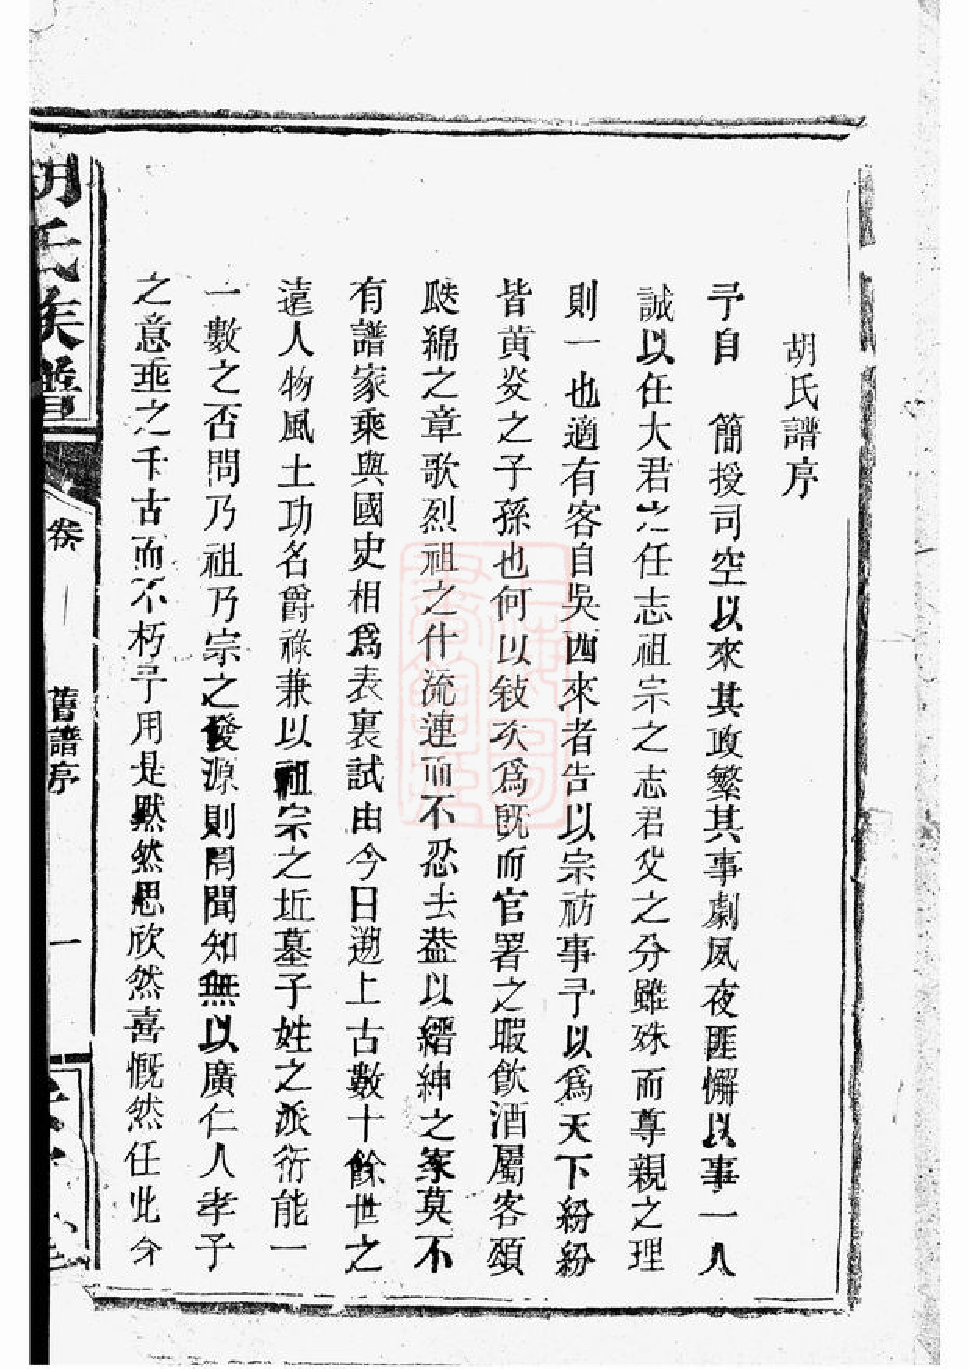 胡氏譜序
予自　簡授司空以來其政繁其事劇夙夜匪懈以事一人
誠以任大君之任志祖宗之志君父之分雖殊而尊親之理
則一也適有客自吳西來者告以宗祊事予以爲天下紛紛
皆黃炎之子孫也何以敍次爲旣而官署之暇飮酒屬客頌
瓞綿之章歌烈祖之什流連而不忍去葢以縉紳之家莫不
有譜家乘與國史相爲表裏試由今日遡上古數十餘世之
遠人物風土功名爵祿兼以祖宗之坵墓子姓之派衍能一
一數之否問乃祖乃宗之發源則罔聞知無以廣仁人孝子
之意垂之千古而不朽予用是默然思欣然喜慨然任此今
胡氏族譜
卷
舊譜序
一